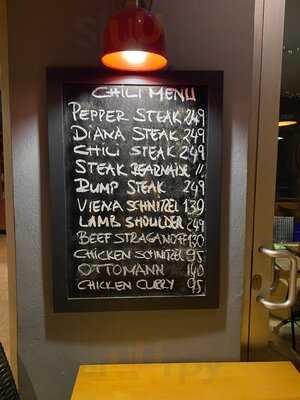 CHILI MENU
PEPPER STEAK 249
DIANA STEAK 249
CHILI STEAK 249
STEAK BEARNAISE "
RUMP STEAK 249
VIENA SCHNITZEL 139
LAMB SHOULDER 249
BEEF STRAGANOFF 130
CHICKEN SCHNITZEL 95
OTTOMANN 140
CHICKEN CURRY 95